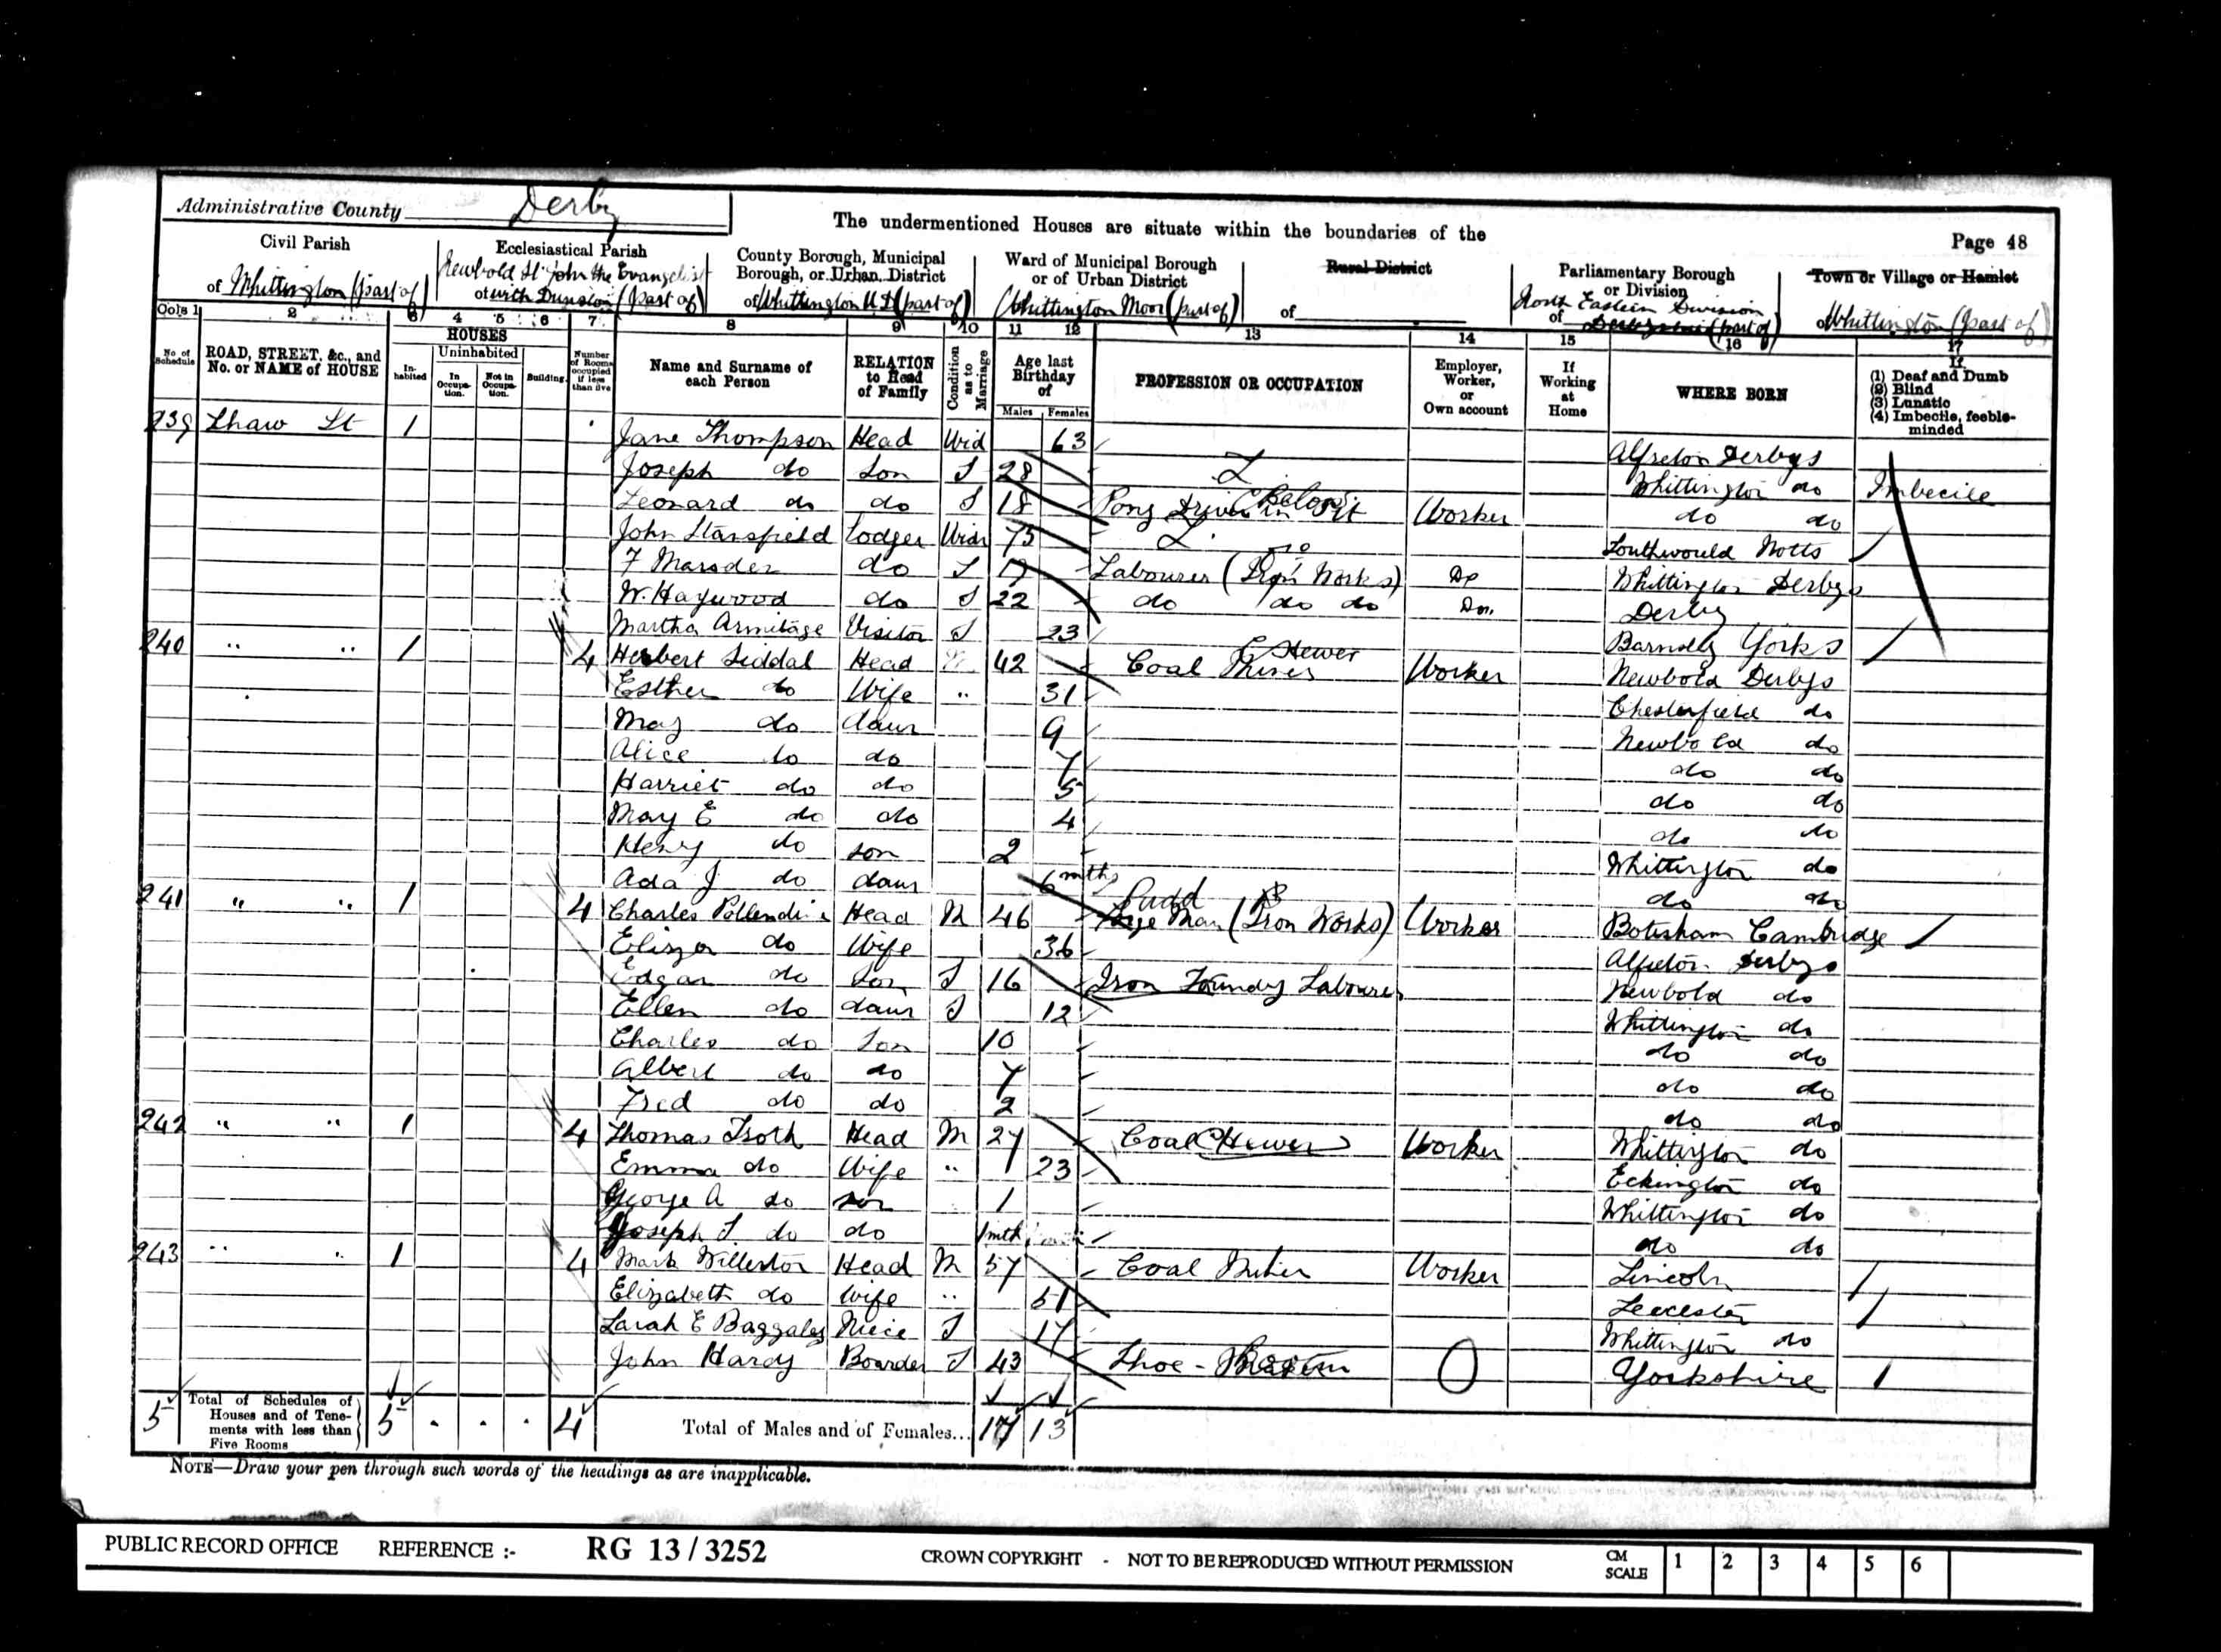 Administrative County Derby
The undermentioned Houses are situate within the boundaries of the
Page 48
Civil Parish
of Whittington (part of)
Ecclesiastical Parish
Newbold St John the Evangelist
of with Dunston (part of)
County Borough, Municipal
Borough, or Urban District
of Whittington U D (part of)
Ward of Municipal Borough
or of Urban District
Whittington Moor (part of)
Rural District
of
Parliamentary Borough
or Division
North Eastern Division
of Derbyshire (part of)
Town or Village or Hamlet
of Whittington (part of)
Cols 1 2 3 4 5 6 7 8 9 10 11 12 13 14 15 16 17
No of Schedule
ROAD, STREET, &c., and No. or NAME of HOUSE
HOUSES
In-habited
Uninhabited
In Occupa-tion.
Not in Occupa-tion.
Building.
Number of Rooms occupied if less than five
Name and Surname of each Person
RELATION to Head of Family
Condition as to Marriage
Age last Birthday of
Males Females
PROFESSION OR OCCUPATION
Employer, Worker, or Own account
If Working at Home
WHERE BORN
If
(1) Deaf and Dumb
(2) Blind
(3) Lunatic
(4) Imbecile, feeble-minded
239 Shaw St 1 Jane Thompson Head Wid 63 Alfreton Derbys
Joseph do Son S 28 Whittington do Imbecile
Leonard do do S 18 Pony Driver in Pit Below Worker do do
John Stansfield Lodger Widr 75 Southwould Notts
F Marsden do S Labourer (Iron Works) Do Whittington Derbys
W. Haywood do S 22 do do do Do. Derby
Martha Armitage Visitor S 23 Barnsley Yorks
240 " " 1 4 Herbert Siddal Head 42 Coal Miner Hewer Worker Newbold Derbys
Esther do Wife " 31 Chesterfield do
May do daur 9 Newbold do
Alice do do 7 do do
Harriet do do 5 do do
May E do do 4 do do
Henry do son 2 Whittington do
Ada J do daur 6 mths do do
241 " " 1 4 Charles Head M 46 Pudd Man (Iron Works) Worker Botisham Cambridge
Elizza do Wife 36 Alfreton Derbys
Edgar do Son S 16 Iron Foundry Labourer Newbold do
Ellen do daur S 12 Whittington do
Charles do Son 10 do do
Albert do do 7 do do
Fred do do 2 do do
242 " " 1 4 Thomas Head M 27 Coal Hewer Worker Whittington do
Emma do Wife " 23 Eckington do
George A do son 1 Whittington do
Joseph T. do do 1mth do do
243 " " 1 4 Mark Willerton Head M 57 Coal Miner Worker Lincoln
Elizabeth do Wife " 51 Leicester
Sarah E Baggaley Niece S 17 Whittington do
John Hardy Boarder S 43 Shoe- Yorkshire
5 Total of Schedules of Houses and of Tene-ments with less than Five Rooms 5 . . . 4 Total of Males and of Females... 17 13
NOTE—Draw your pen through such words of the headings as are inapplicable.
PUBLIC RECORD OFFICE REFERENCE :- RG 13 / 3252 CROWN COPYRIGHT - NOT TO BE REPRODUCED WITHOUT PERMISSION CM SCALE 1 2 3 4 5 6